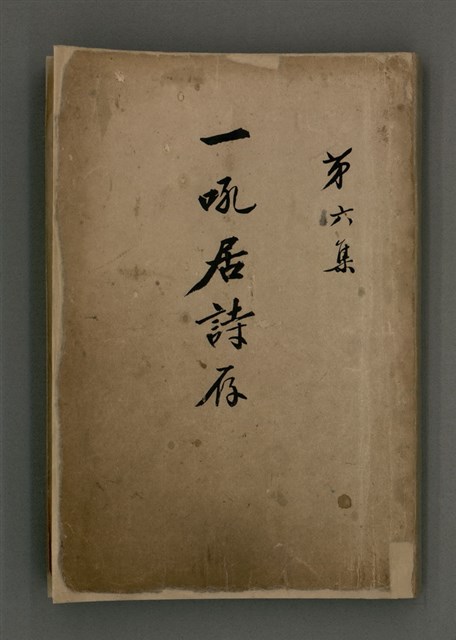 第六集
一吼居詩存